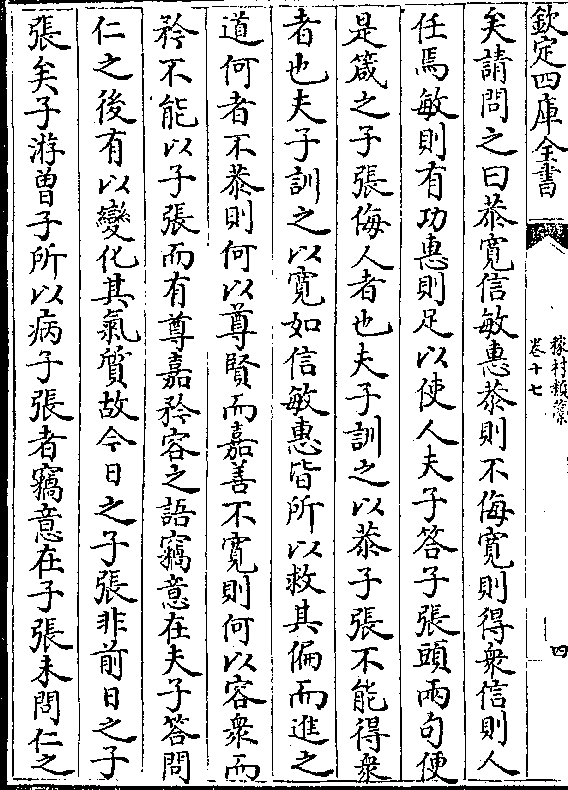 欽定四庫全書
稼村類藁
卷十七
四
矣請問之曰恭寛信敏惠恭則不侮寛則得衆信則人
任焉敏則有功惠則足以使人夫子答子張頭兩句便
是箴之子張侮人者也夫子訓之以恭子張不能得衆
者也夫子訓之以寛如信敏惠皆所以救其偏而進之
道何者不恭則何以尊賢而嘉善不寛則何以容衆而
矜不能以子張而有尊嘉矜容之語竊意在夫子答問
仁之後有以變化其氣質故今日之子張非前日之子
張矣子游曾子所以病子張者竊意在子張未問仁之